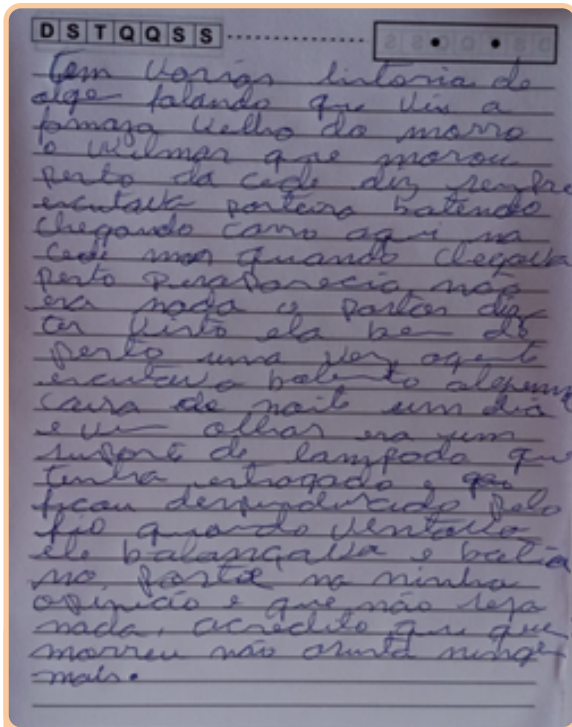 D S T Q Q S S
Tem varias historia de
alge falando que viu a
famaza velha do morro
o Wilmar que morou
perto da cede diz sempre
escutava porteira batendo
chegando carro aqui na
cede mas quando chegava
perto não
era nada o pastor diz
ter visto ela bem de
perto uma vez, agente
escutava batento alguema
caisa de noite um dia
eu vi olhar era um
suporte de lampada que
tinha estragado e que
ficou dependurado pelo
fio quando ventava
ele balançava e batia
no na minha
opinião e que não seja
nada, acredito que quem
morreu não asusta ninge
mais.